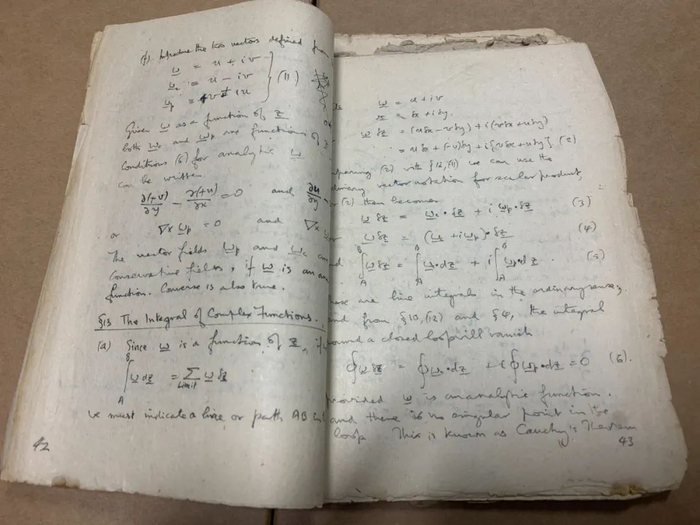 the two vectors defined from
w = u + iv
w_c = u − iv
w_p = v + iu
(11)
Given w as a function of z
both w_c and w_p are functions of z
Conditions (6) for analytic w
can be written
∂(+v)/∂y − ∂(+u)/∂x = 0 and ∂u/∂y
or ∇× w_p = 0 and ∇×
The vector fields w_p and w_c
conservative fields, if w is an
function. Converse is also true.
§13 The Integral of Complex Functions.
(a) Since w is a function of z, if
∫_A^B w dz = Σ_Limit w δz
We must indicate a line or path AB
42
w = u + iv
z = δx + iδy
w δz = (uδx − vδy) + i(vδx + uδy)
= uδx + (−v)δy + i{vδx + uδy} (2)
(2) with §12, (11) we can use the
vector notation for scalar product
(2) then becomes
w δz = w_c · δz + i w_p · δz (3)
w δz = (w_c + i w_p) · δz (4)
∫_A^B w δz = ∫_A^B w_c · dz + i ∫_A^B w_p · dz (5)
are line integrals in the ordinary sense,
and from §10, (12) and §4, the integral
around a closed loop will vanish
∮ w δz = ∮ w_c · dz + i ∮ w_p · dz = 0 (6).
provided w is an analytic function.
and there is no singular point in the
loop This is known as Cauchy's Theorem
43